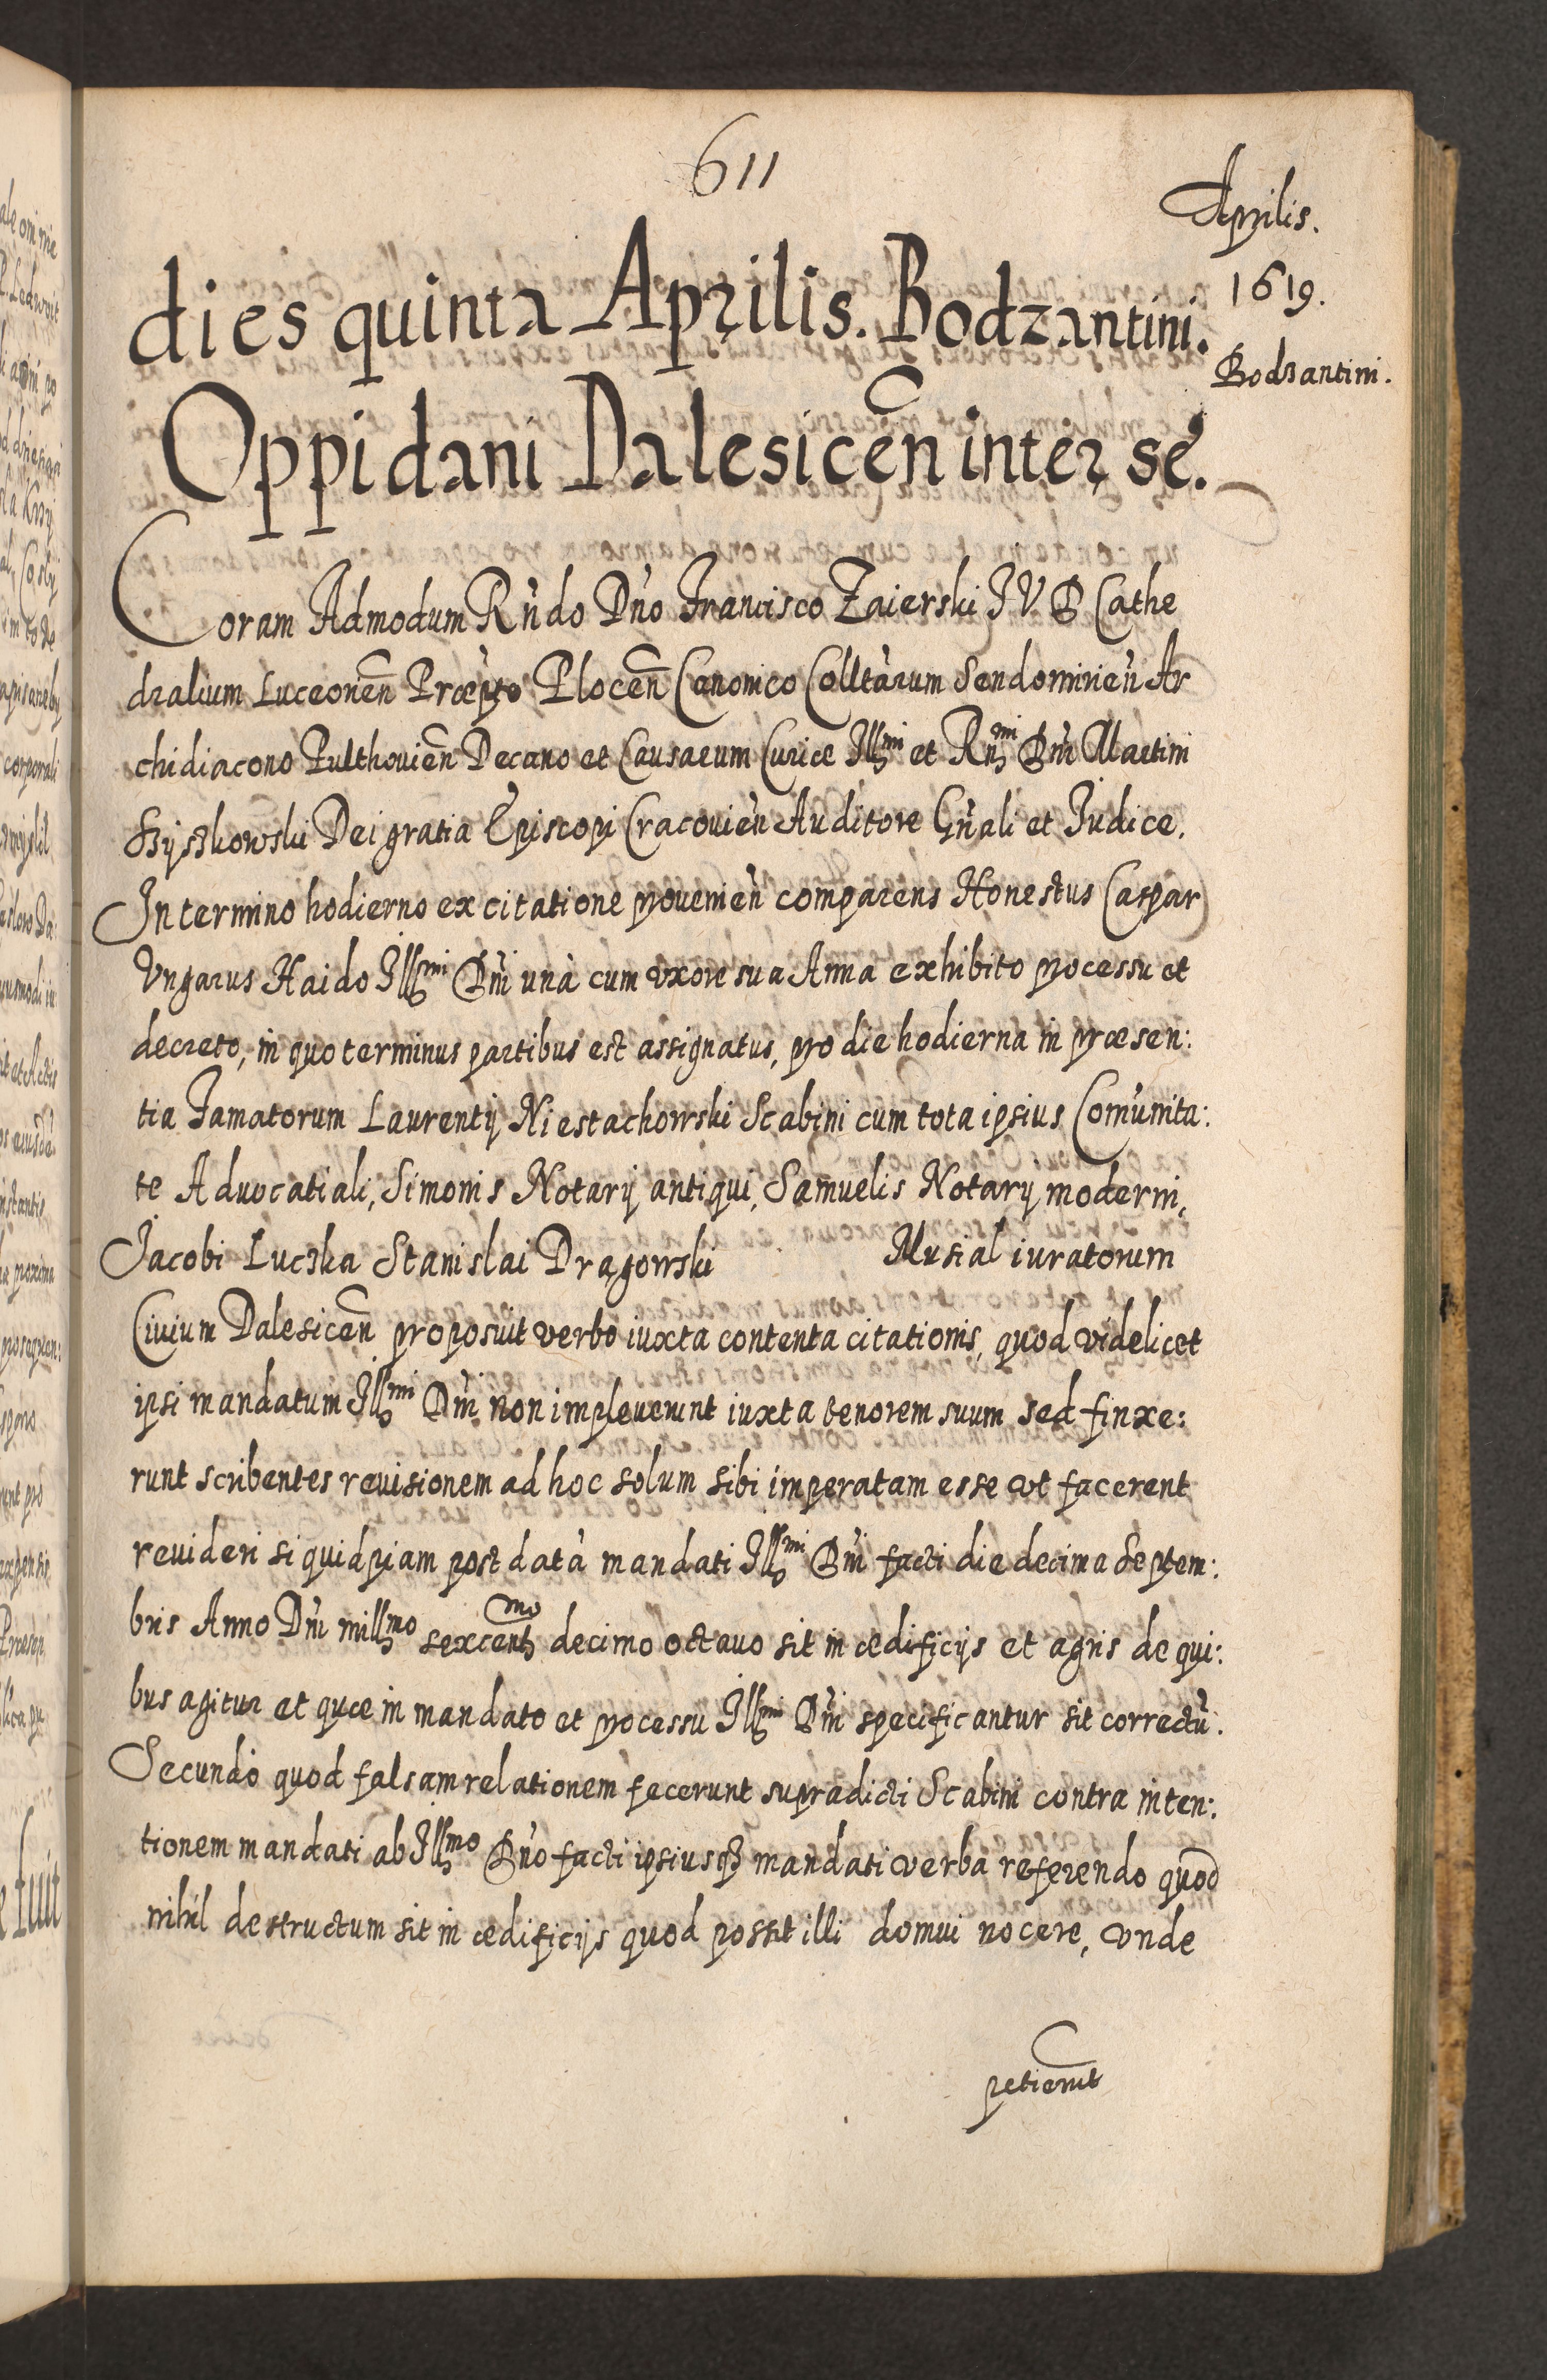 611
Aprilis.
1619.
Bodzantini.
dies quinta Aprilis. Bodzantini.
Oppidani Dalesicen̄ inter se.
Coram Admodum Rn̄do Dn̄o Francisco Zaierski I V D Cathe
dralium Luceonen̄ Præpto Plocen̄ Canonico Colltàrum Sendomirien̄ Ar
chidiacono Pulthouien̄ Decano et Causarum Curiæ Illmi et Rmi Dn̄i Martini
Szyszkowski Dei gratia Episcopi Cracouien̄ Auditore Gn̄ali et Iudice.
In termino hodierno ex citatione prouenien̄ comparens Honestus Caspar
Vngarus Haido Illmi Dn̄i unà cum vxore sua Anna exhibito processu et
decreto, in quo terminus partibus est assignatus, pro die hodierna in præsen:
tia Famatorum Laurentij Niestachowski Scabini cum tota ipsius Com̄unita:
te Aduocatiali, Simonis Notarij antiqui, Samuelis Notarij moderni,
Jacobi Luczka Stanislai Dragowski Musial iuratorum
Ciuium Dalesicen̄ proposuit verbo iuxta contenta citationis, quod videlicet
ipsi mandatum Illmi Dn̄i non impleuerunt iuxta tenorem suum sed finxe:
runt scribentes reuisionem ad hoc solum sibi imperatam esse vt facerent
reuideri si quidpiam post datà mandati Illmi Dn̄i facti die decima Septem:
bris Anno Dn̄i millmo sexcentmo decimo octauo sit in ædificijs et agris de qui:
bus agitur et quæ in mandato et processu Illmi Dn̄i specificantur sit correctū.
Secundò quod falsam relationem fecerunt supradicti Scabini contra inten:
tionem mandati ab Illmo Dn̄o facti ipsiusqꝫ mandati verba referendo quod
nihil destructum sit in ædificijs quod possit illi domui nocere, vnde
petierunt